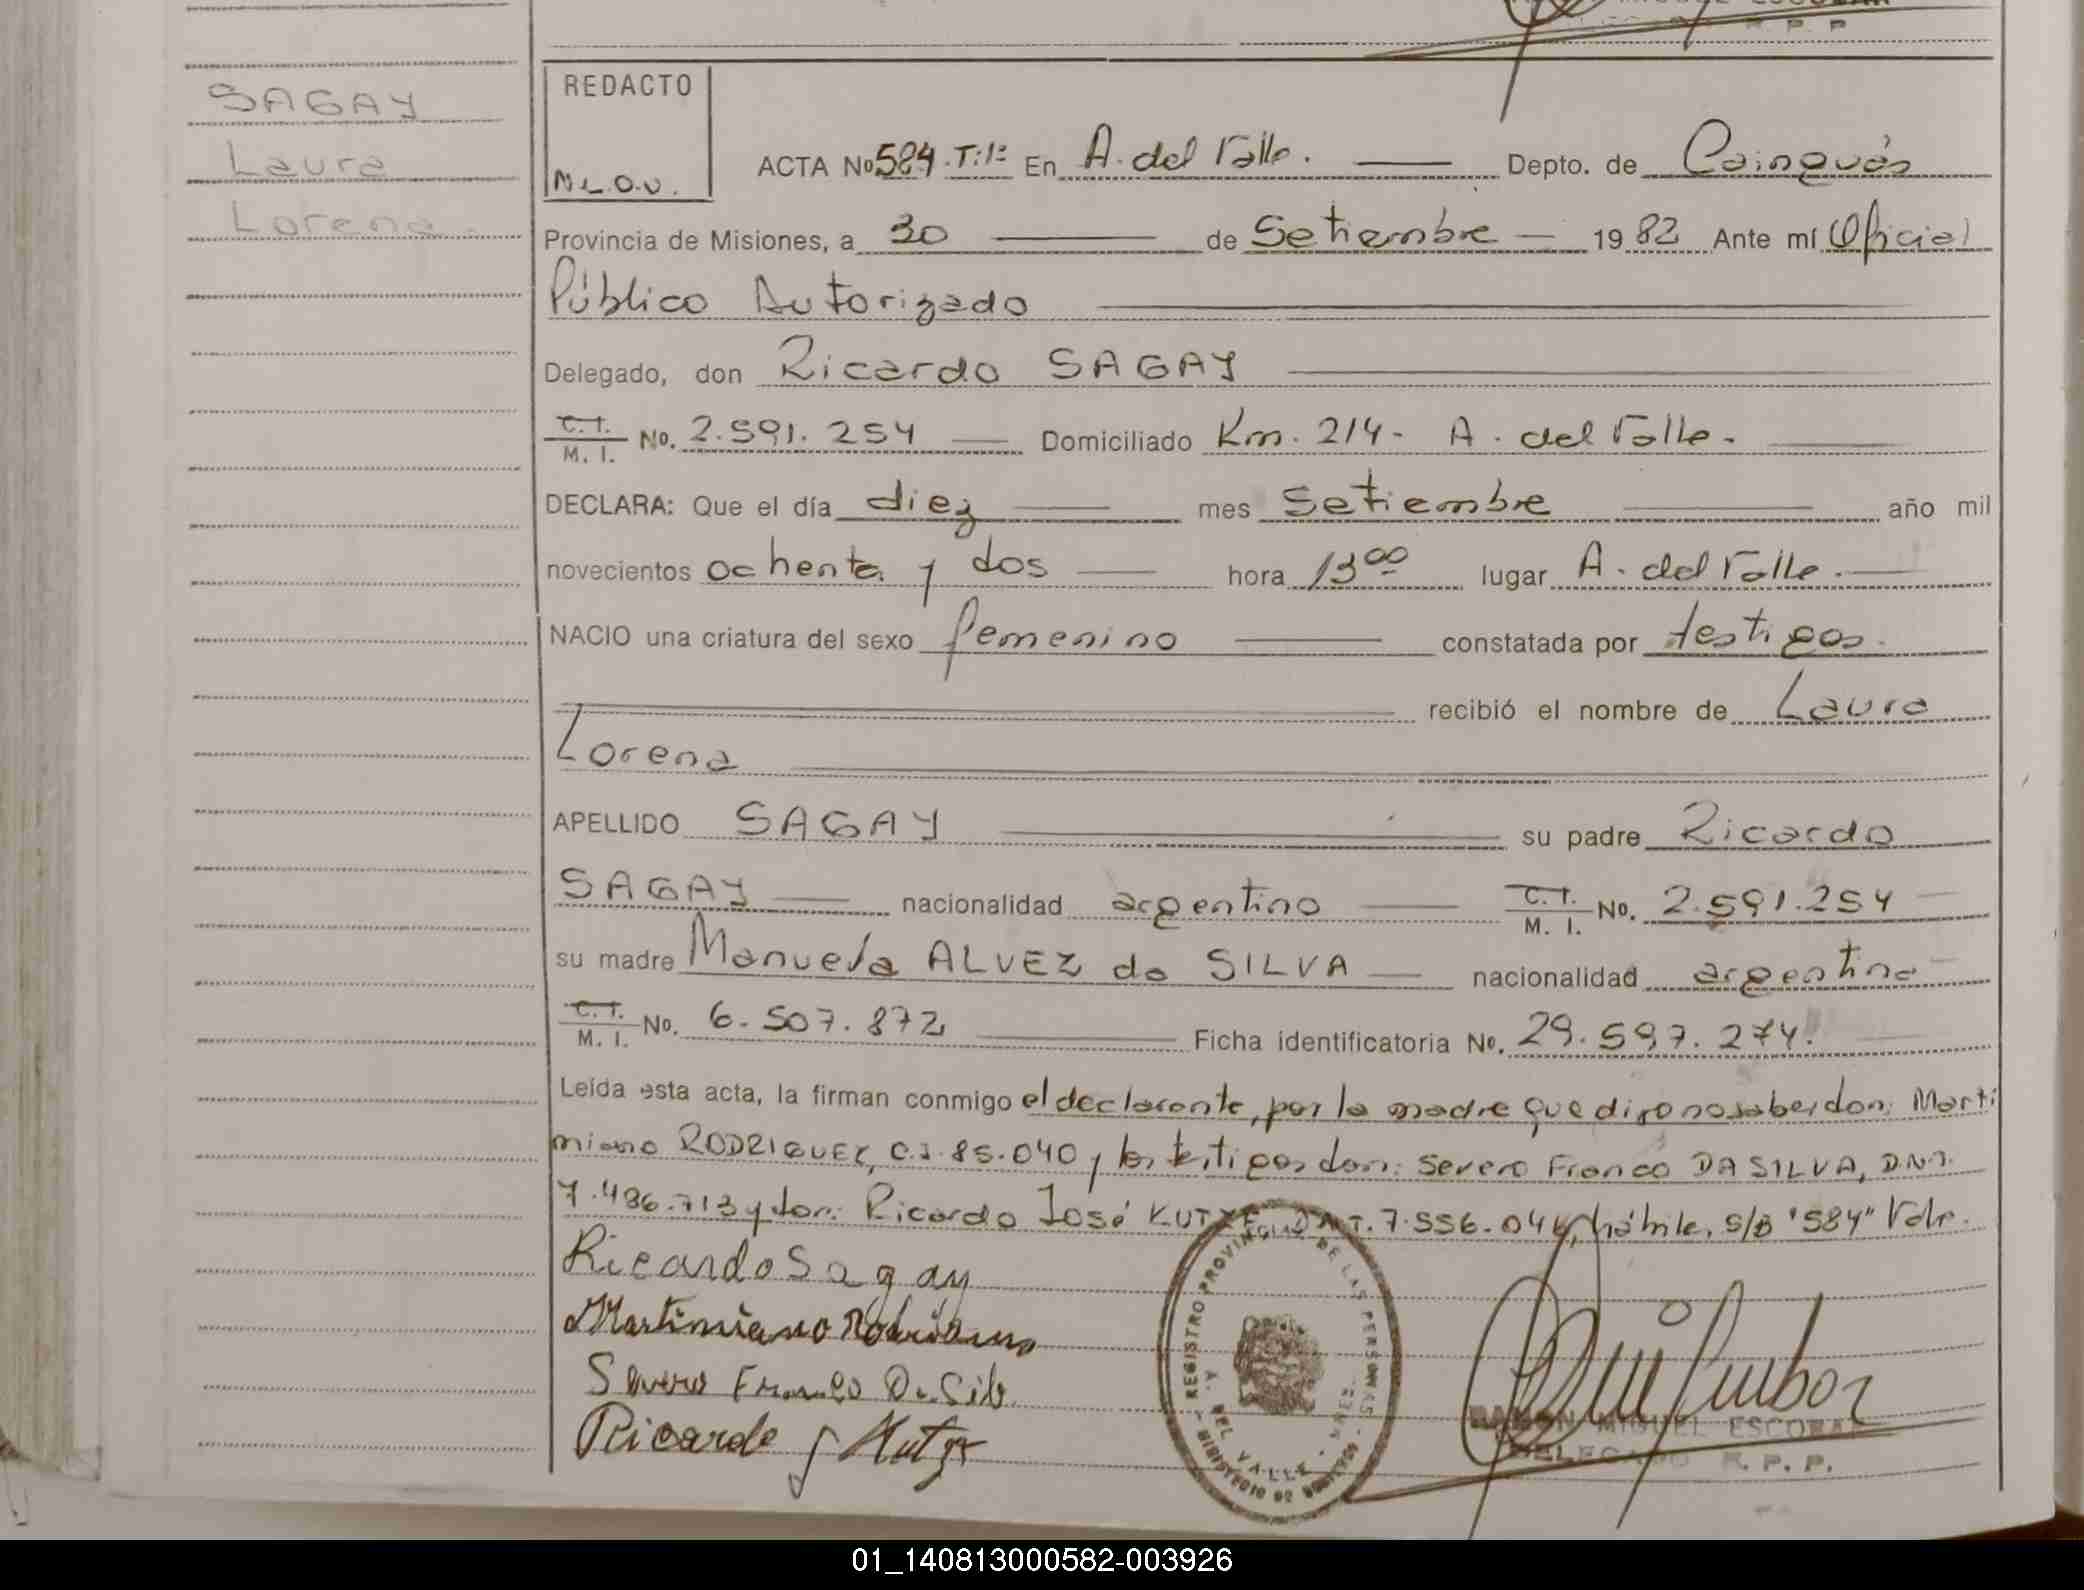 R. P. P.
SAGAY
Laura
Lorena
REDACTO
N.L.O.V.
ACTA No 584.T:1º En A. del Valle. Depto. de Cainguás
Provincia de Misiones, a 30 de Setiembre 1982 Ante mí Oficial
Público Autorizado
Delegado, don Ricardo SAGAY
C. I. / M. I. No. 2.591.254 Domiciliado Km. 214- A. del Valle.
DECLARA: Que el día diez mes setiembre año mil
novecientos ochenta y dos hora 13⁰⁰ lugar A. del Valle.
NACIO una criatura del sexo femenino constatada por testigos.
recibió el nombre de Laura
Lorena
APELLIDO SAGAY su padre Ricardo
SAGAY nacionalidad argentino C. I. / M. I. No. 2.591.254
su madre Manuela ALVEZ da SILVA nacionalidad argentina
C. I. / M. I. No. 6.507.872 Ficha identificatoria No. 29.597.274.
Leída esta acta, la firman conmigo el declarante, por la madre que dijo no saber, don: Marti
miano RODRIGUEZ, C.I. 85.040 y los testigos don: Severo Franco DA SILVA, D.N.I.
7.486.713 y don: Ricardo José D.N.I. 7.556.044, hábiles, s/b "584" Vale.
Ricardo Sagay
Martimiano
Severo Franco Da Silv
Ricardo J
REGISTRO PROVINCIAL DE LAS PERSONAS
A. DEL VALLE - MNES.
MINISTERIO DE GOBIERNO
RAMON MIGUEL ESCOBAR
DELEGADO R. P. P.
01_140813000582-003926